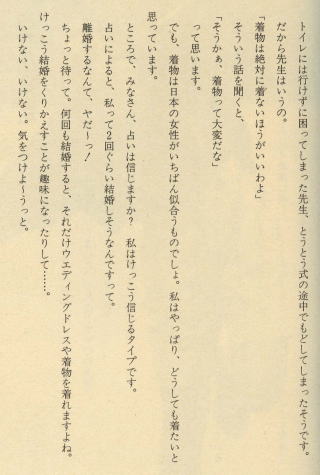 トイレには行けずに困ってしまった先生、とうとう式の途中でもどしてしまったそうです。
だから先生はいうの。
「着物は絶対に着ないほうがいいわよ」
そういう話を聞くと、
「そうかぁ、着物って大変だな」
って思います。
でも、着物は日本の女性がいちばん似合うものでしょ。私はやっぱり、どうしても着たいと
思っています。
ところで、みなさん、占いは信じますか？　私はけっこう信じるタイプです。
占いによると、私って２回ぐらい結婚しそうなんですって。
離婚するなんて、ヤだ〜っ！
ちょっと待って。何回も結婚すると、それだけウエディングドレスや着物を着れますよね。
けっこう結婚をくりかえすことが趣味になったりして……。
いけない、いけない。気をつけよ〜うっと。